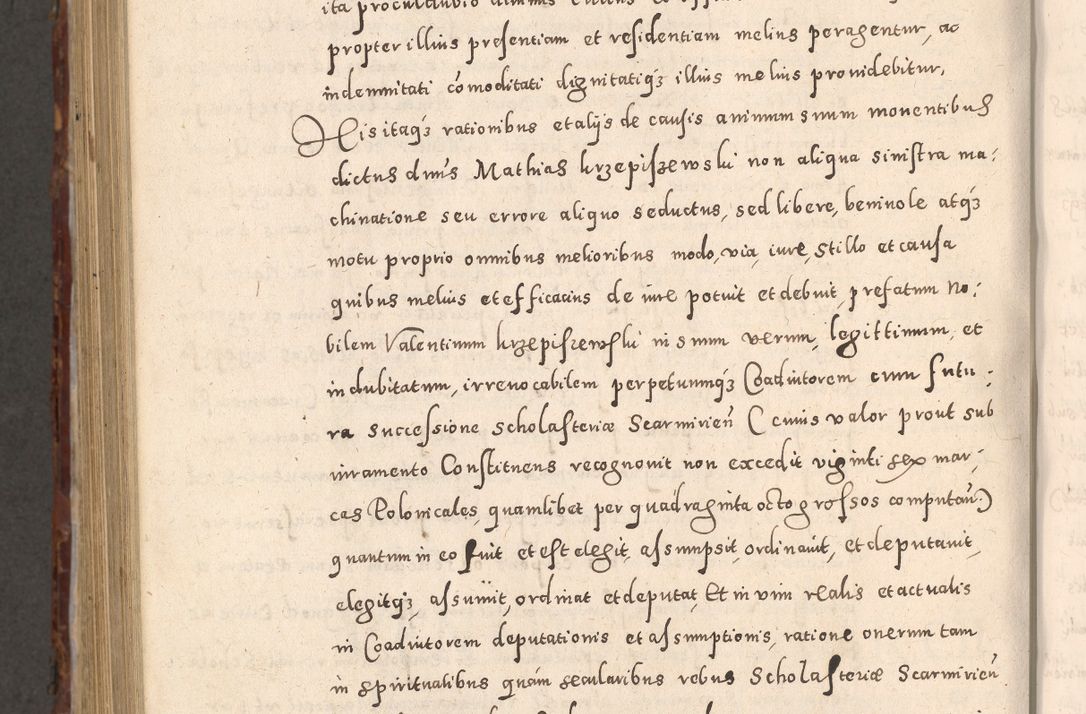 propter illius presentiam et residentiam melius peragentur, ac
indemnitati cōmoditati dignitatiqȝ illius melius providebitur,
His itaqȝ rationibus et alijs de causis animum suum moventibus
dictus dnūs Mathias krzepiszewski non aliqua sinistra ma:
chinatione seu errore aliquo seductus, sed libere, benivole atqȝ
motu proprio omnibus melioribus modo, via, iure, stillo et causa
quibus melius et efficacius de iure potuit et debuit, prefatum No:
bilem Valentinum krzepiszewski in suum verum, legittimum, et
indubitatum, irrevocabilem perpetuumqȝ Coadiutorem cum futu:
ra successione scholasteriæ Scarmirień (cuius valor prout sub
iuramento Constituens recognovit non excedit viginti sex mar:
cas Polonicales quamlibet per quadraginta octo grossos computań)
quantum in eo fuit et est elegit, assumpsit, ordinavit, et deputavit,
elegitqȝ, assumit, ordinat et deputat, Et in vim realis et actualis
in Coadiutorem deputationis et assumptionis, ratione onerum tam
in spiritualibus quàm secularibus rebus Scholasteriæ Scarmirień